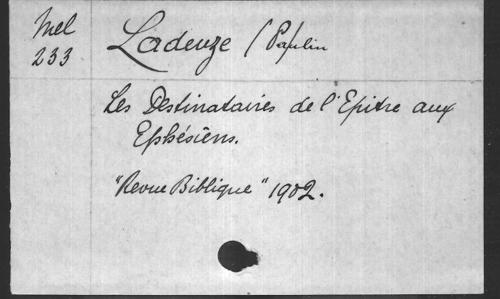 Mel
233
Ladeuze (Paulin
Les Destinataires de l'Epitre aux
Ephésiens.
"Revue Biblique" 1902.